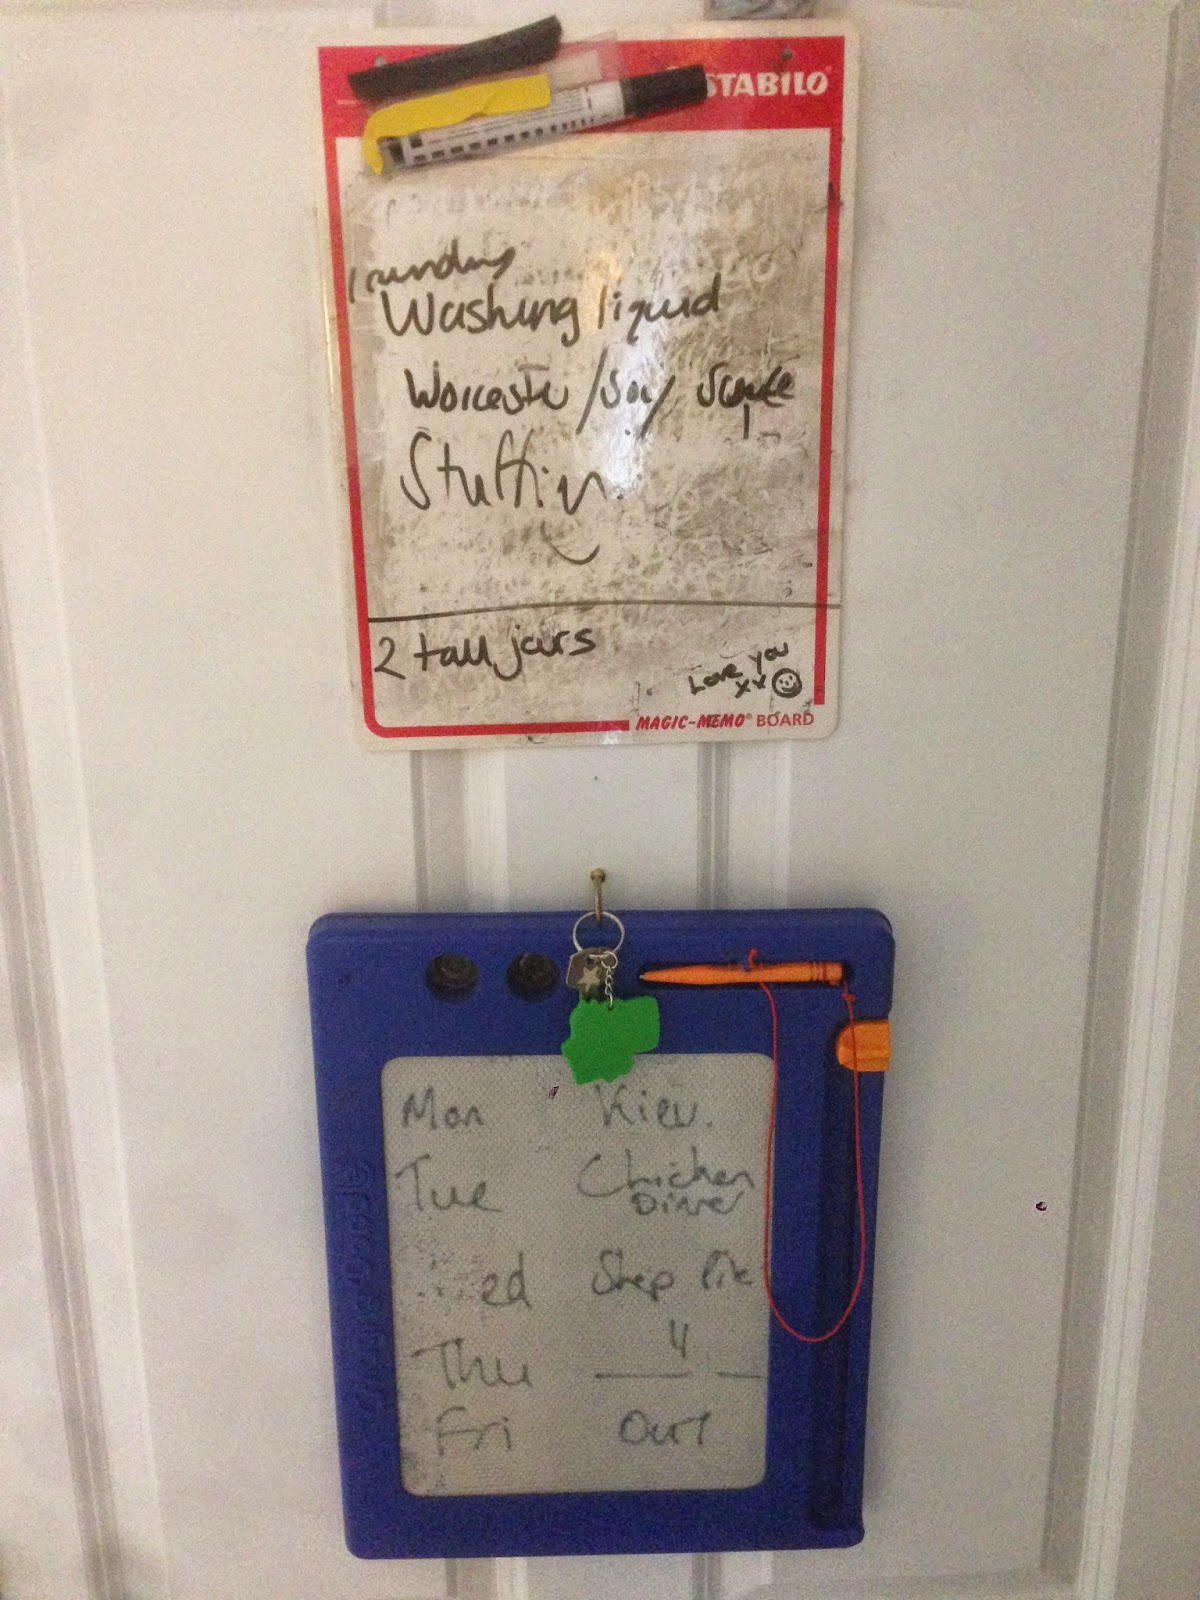 STABILO
Laundry
Washing liquid
Worcester/Soy Sauce
Stuffin
2 tall jars
Love you
xx
MAGIC-MEMO® BOARD
Mon Kiev.
Tue Chicken
Dinner
ed Shep Pie
Thu "
Fri Out